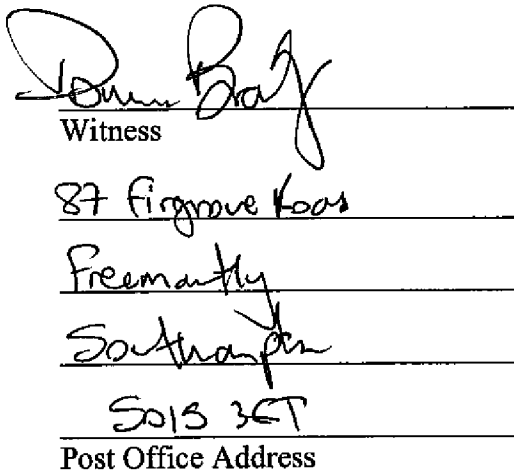 Witness
87 Firgrove Road
Freemantle
Southampton
SO15 3ET
Post Office Address